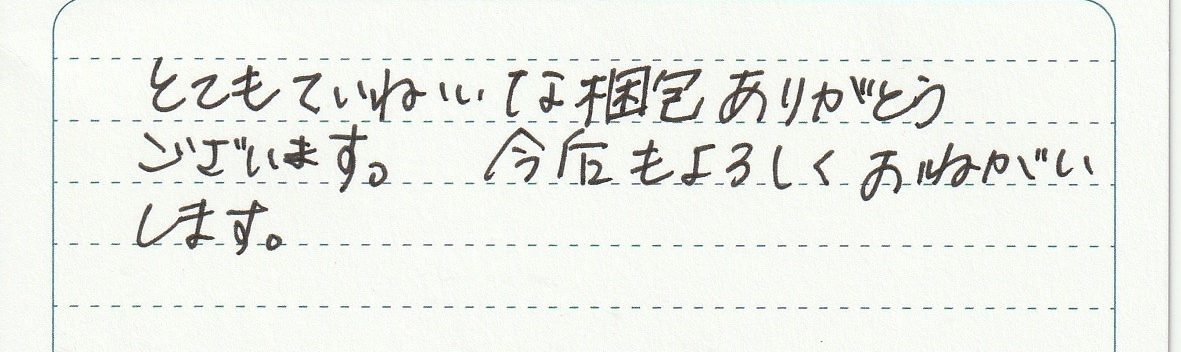 とてもていねいな梱包ありがとう
ございます。 今后もよろしくおねがい
します。